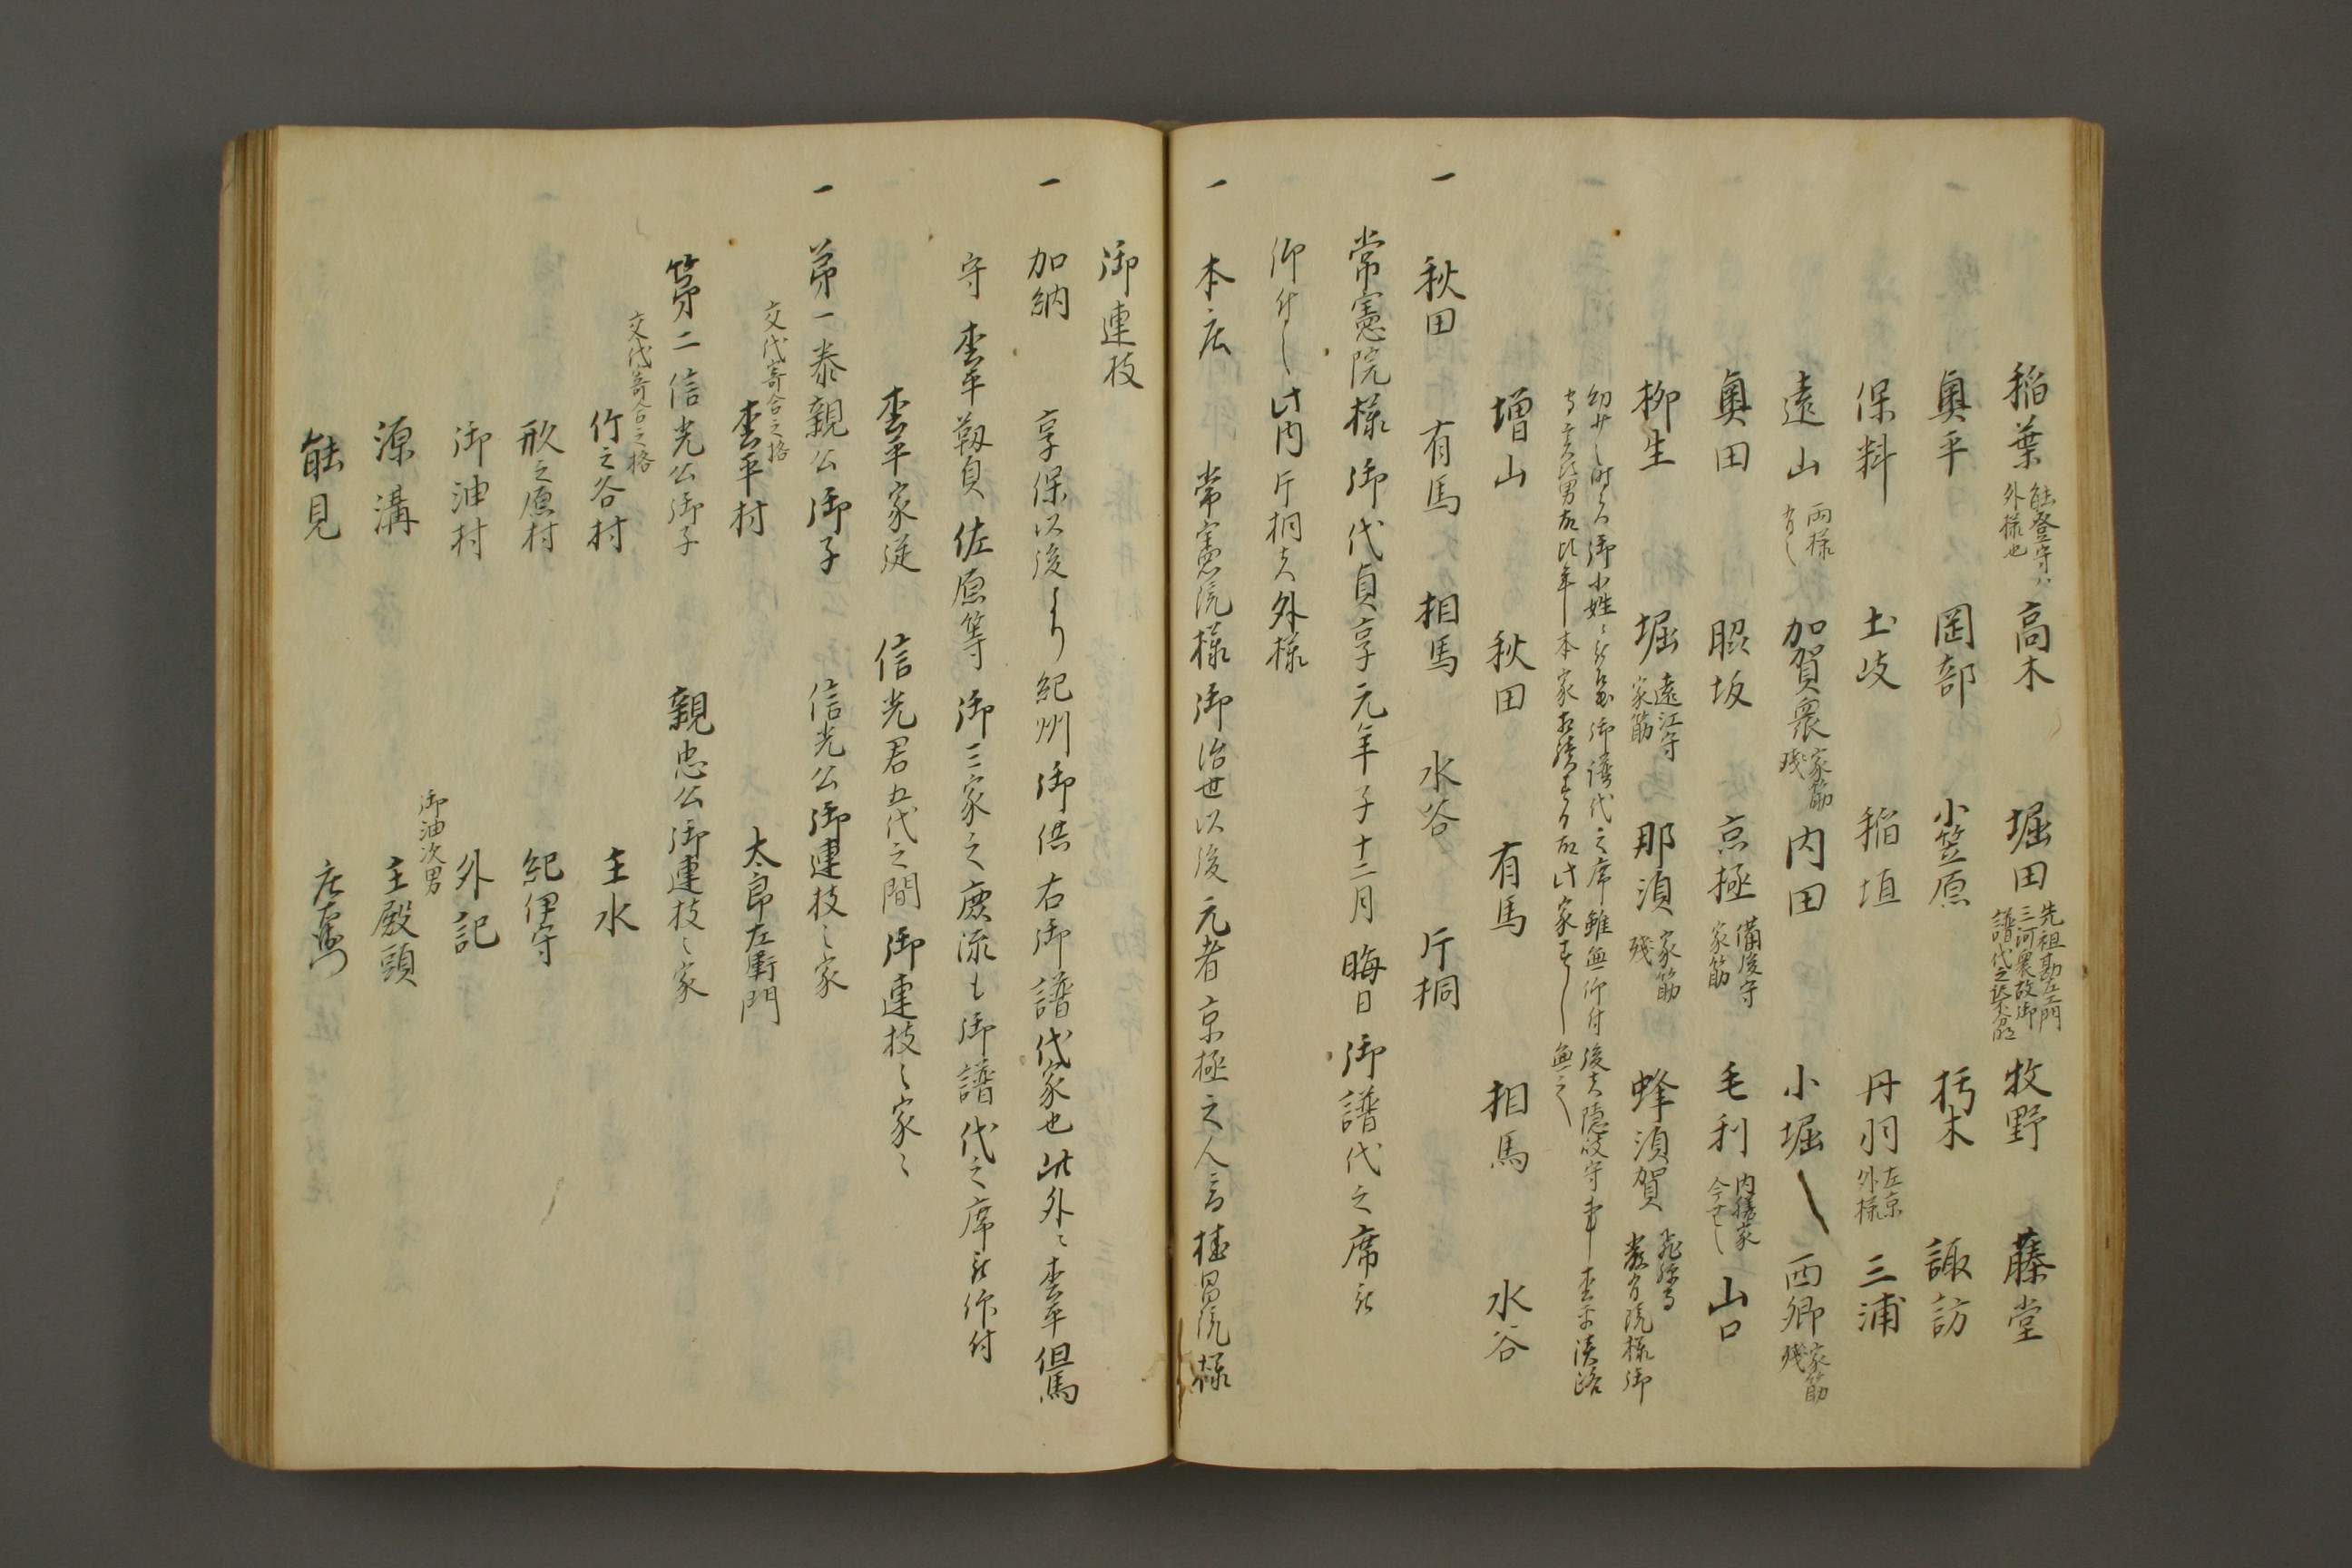 稲葉 能登守ハ外様也 高木 堀田 先祖勘左エ門三河衆故御譜代之 牧野 藤堂
奥平 岡部 小笠原 朽木 諏訪
保科 土岐 稲垣 丹羽 左京外様 三浦
遠山 両様有之 加賀衆 家筋残 内田 小堀 西郷 家筋残
奥田 脇坂 京極 備後守家筋 毛利 内膳家今ナシ 山口
柳生 堀 遠江守家筋 那須 家筋残 蜂須賀 飛騨守 厳有院様御
幼少之時ゟ御小姓 御譜代之席雖無仰付後者隠岐守事松平淡路
守 男 本家相続 此家 無之
増山 秋田 有馬 相馬 水谷
一 秋田 有馬 相馬 水谷 片桐
常憲院様御代貞享元年子十二月晦日御譜代之席被
仰付之此内片桐者外様
一 本庄 常憲院様御治世以後元者京極之人而桂昌院様
御連枝
一 加納 享保以後ゟ紀州御供右御譜代家也此外ニ松平但馬
守松平靱負佐原等御三家之庶流も御譜代之席被仰付
松平家逹 信光君五代之間御連枝之家ニ
一 第一泰親公御子 信光公御連枝之家
交代寄合之格
松平村 太郎左衛門
第二信光公御子 親忠公御連枝之家
交代寄合之格
竹之谷村 主水
形之原村 紀伊守
御油村 外記
御油次男
源溝 主殿頭
能見 庄右衛門